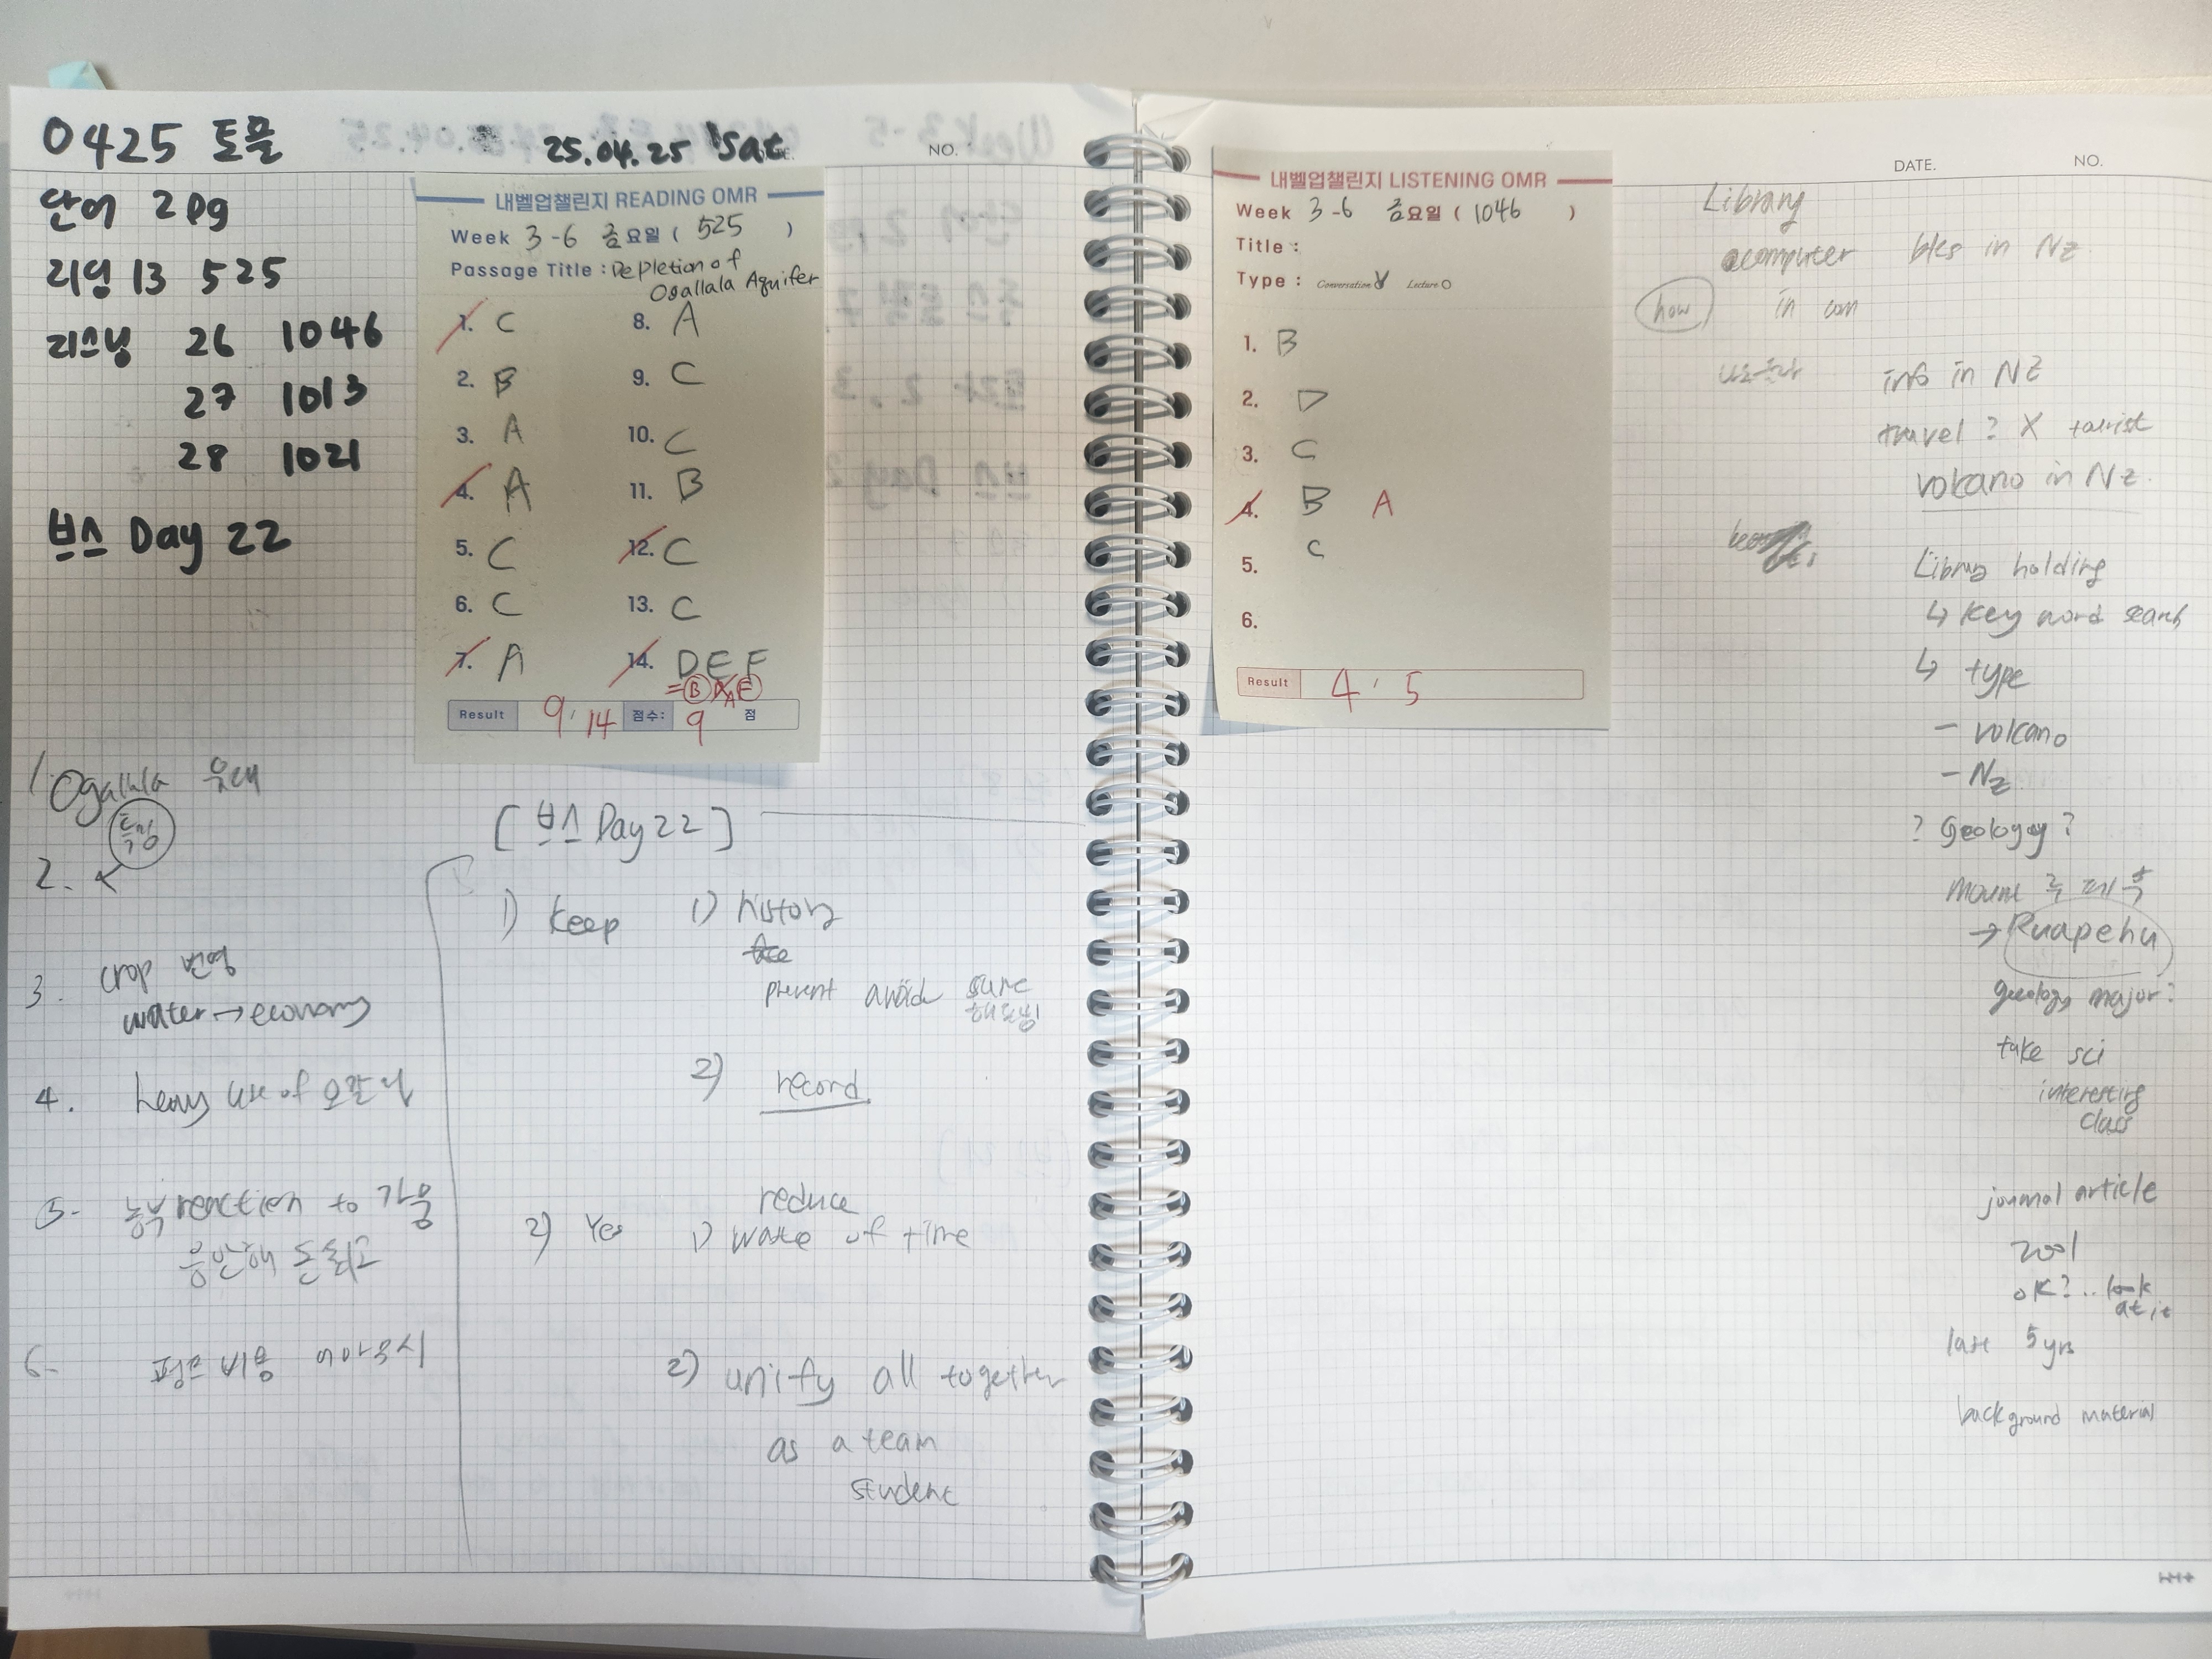 0425 토플
25.04.25 Sat
NO.
단어 2pg
리딩 13 525
리스닝 26 1046
27 1013
28 1021
브스 Day 22
내벨업챌린지 READING OMR
Week 3-6 금요일 ( 525 )
Passage Title : Depletion of
Ogallala Aquifer
1. C
2. B
3. A
4. A
5. C
6. C
7. A
8. A
9. C
10. C
11. B
12. C
13. C
14. DEF
Result 9 / 14 점수: 9 점
1. Ogallala
특징
2.
3. crop 번영
water → economy
4. heavy use of 오갈라
5. 농부 reaction to 가뭄
6. 펌프 비용
[ 브스 Day 22 ]
1) keep 1) history
prevent
2) record
2) Yes 1) reduce
waste of time
2) unify all together
as a team
student
내벨업챌린지 LISTENING OMR
Week 3-6 금요일 ( 1046 )
Title :
Type : Conversation Lecture
1. B
2. D
3. C
4. B A
5. C
6.
Result 4 / 5
DATE.
NO.
Library
computer bks in NZ.
how in com
info in NZ
travel ? X tourist
volcano in NZ.
Library holding
↳ key word search
↳ type
- volcano
- NZ
? Geology ?
mount 루페후
→ Ruapehu
geology major?
take sci
interesting
class
journal article
2001
OK? .. look
at it
last 5 yrs
background material